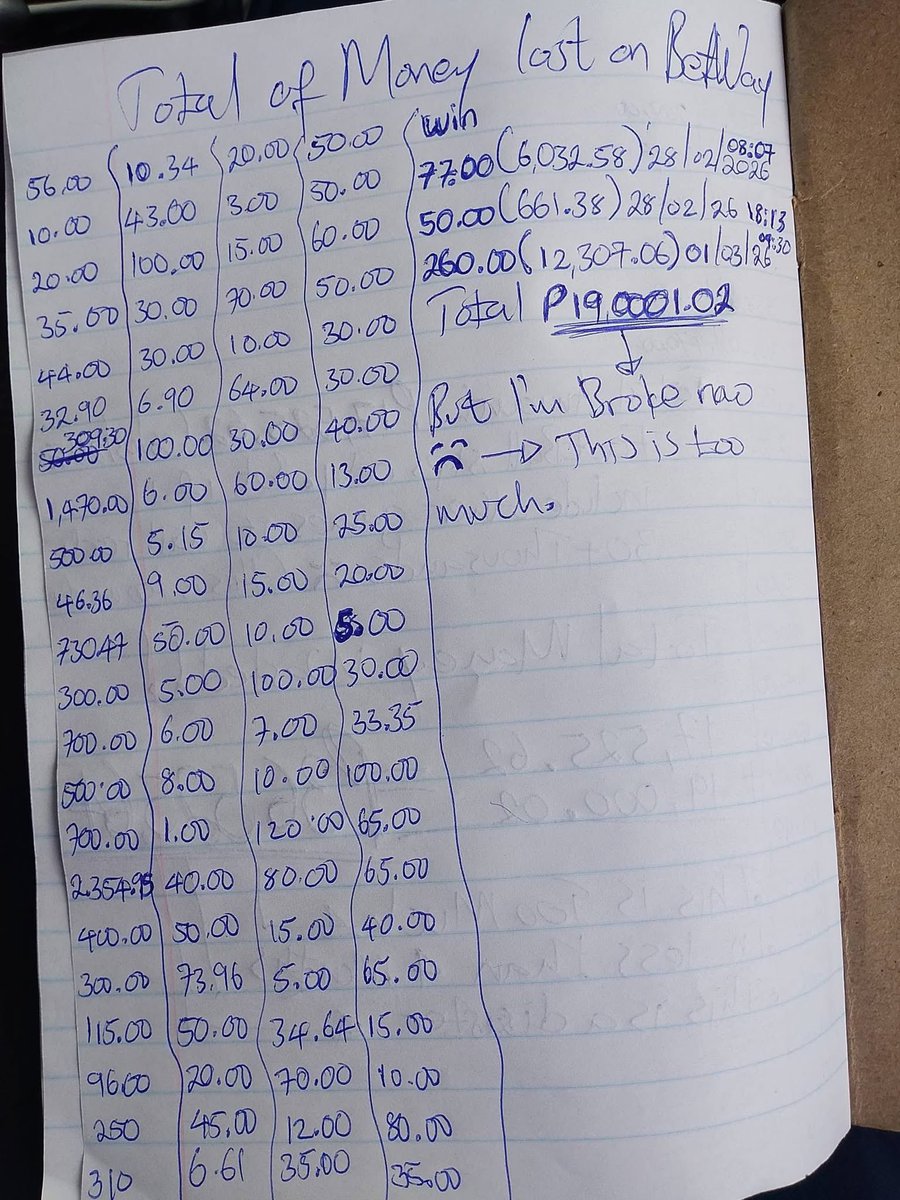 Total of Money lost on BetWay
56.00 10.34 20.00 50.00 win
10.00 43.00 3.00 50.00 77.00 (6,032.58) 28/02/2026 08:07
20.00 100.00 15.00 60.00 50.00 (661.38) 28/02/26 18:13
35.00 30.00 70.00 50.00 260.00 (12,307.06) 01/03/26 09:30
44.00 30.00 10.00 30.00 Total P19,0001.02
32.90 6.90 64.00 30.00 But I'm Broke nao
309.30 100.00 30.00 40.00 This is too
50.00
1,470.00 6.00 60.00 13.00 much.
500.00 5.15 10.00 25.00
46.36 9.00 15.00 20.00
730.47 50.00 10.00 5.00
300.00 5.00 100.00 30.00
700.00 6.00 7.00 33.35
500.00 8.00 10.00 100.00
700.00 1.00 120.00 65.00
2,354.95 40.00 80.00 65.00
400.00 50.00 15.00 40.00
300.00 73.96 5.00 65.00
115.00 50.00 34.64 15.00
96.00 20.00 70.00 10.00
250 45.00 12.00 80.00
310 6.61 35.00 35.00